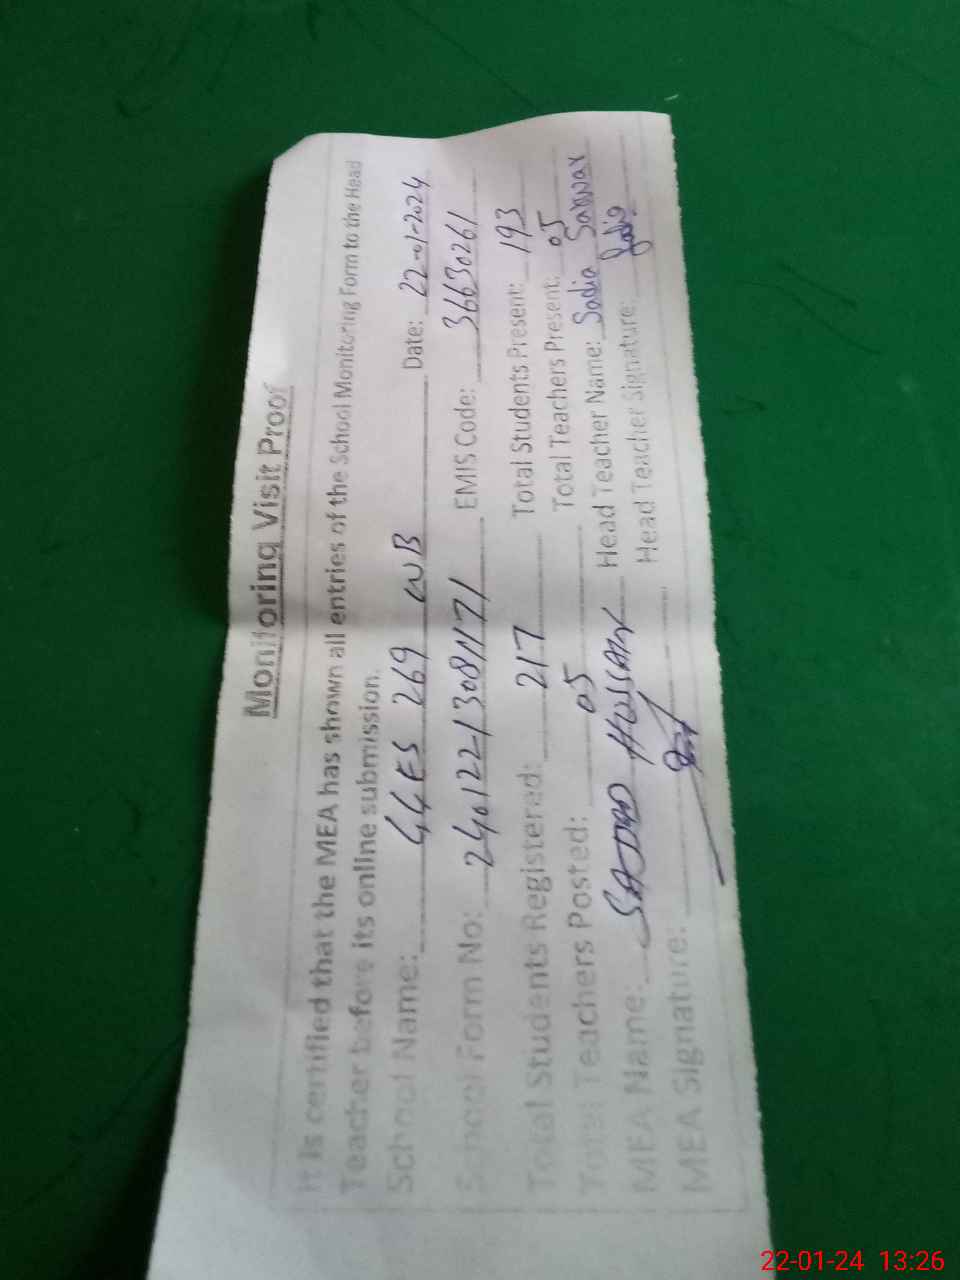 Monitoring Visit Proof
It is certified that the MEA has shown all entries of the School Monitoring Form to the Head
Teacher before its online submission.
School Name: GGES 269 WB Date: 22-01-2024
School Form No: 24012213081171 EMIS Code: 36630261
Total Students Registered: 217 Total Students Present: 193
Total Teachers Posted: 05 Total Teachers Present: 05
MEA Name: SAJJAD HUSSAIN Head Teacher Name: Sadia Sarwar
MEA Signature: Head Teacher Signature: Sadia
22-01-24 13:26